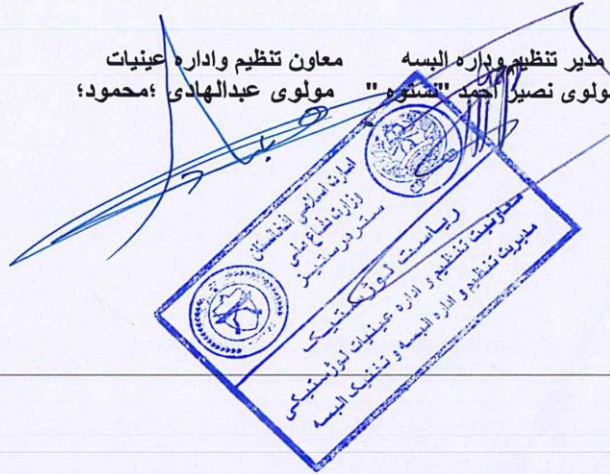 مدیر تنظیم واداره البسه
مولوی نصیر احمد "ستوه"
معاون تنظیم واداره عینیات
مولوی عبدالهادی ؛محمود؛
امارت اسلامی افغانستان
وزارت دفاع ملی
ستر درستیز
ریاست لوژستیک
معاونیت تنظیم و اداره عینیات لوژستیکی
مدیریت تنظیم و اداره البسه و تفتیک البسه